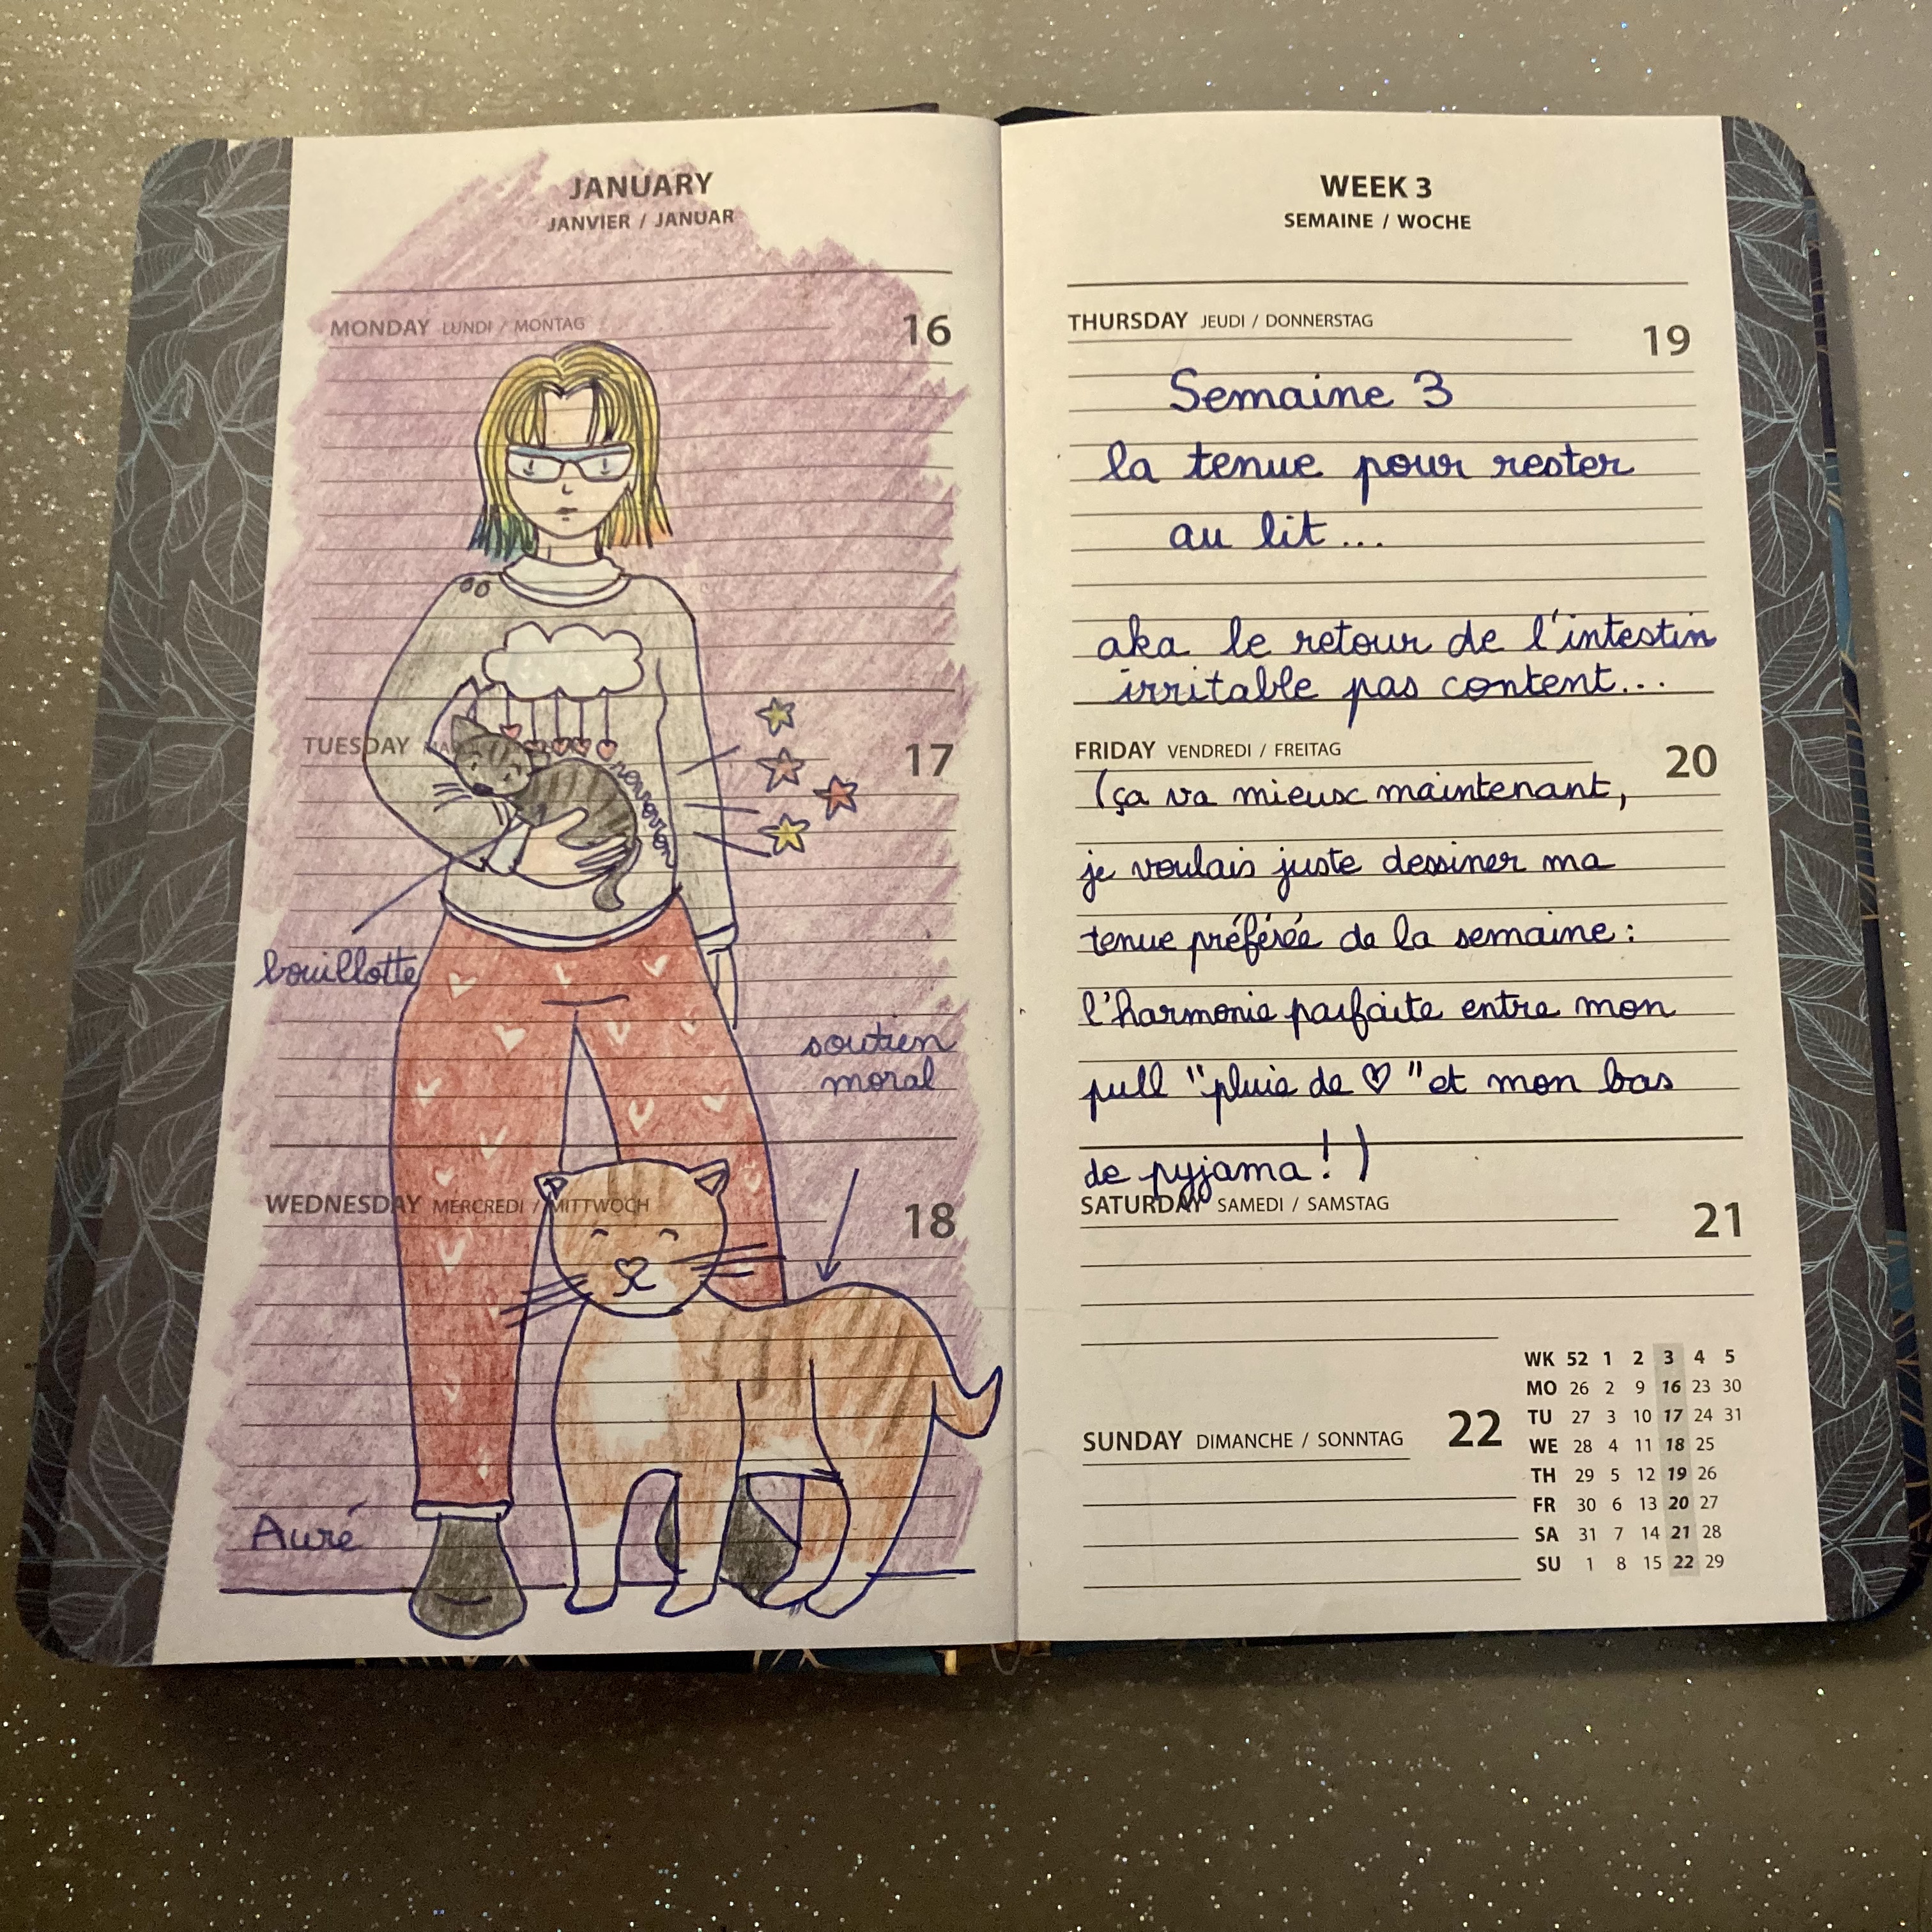 JANUARY
JANVIER / JANUAR
MONDAY LUNDI / MONTAG 16
TUESDAY 17
ronronron
bouillotte
soutien
moral
WEDNESDAY MERCREDI / MITTWOCH 18
Auré
WEEK 3
SEMAINE / WOCHE
THURSDAY JEUDI / DONNERSTAG 19
Semaine 3
la tenue pour rester
au lit...
aka le retour de l'intestin
irritable pas content...
FRIDAY VENDREDI / FREITAG 20
(ça va mieux maintenant,
je voulais juste dessiner ma
tenue préférée de la semaine :
l'harmonie parfaite entre mon
pull "pluie de ♡" et mon bas
de pyjama ! )
SATURDAY SAMEDI / SAMSTAG 21
SUNDAY DIMANCHE / SONNTAG 22
WK 52 1 2 3 4 5
MO 26 2 9 16 23 30
TU 27 3 10 17 24 31
WE 28 4 11 18 25
TH 29 5 12 19 26
FR 30 6 13 20 27
SA 31 7 14 21 28
SU 1 8 15 22 29